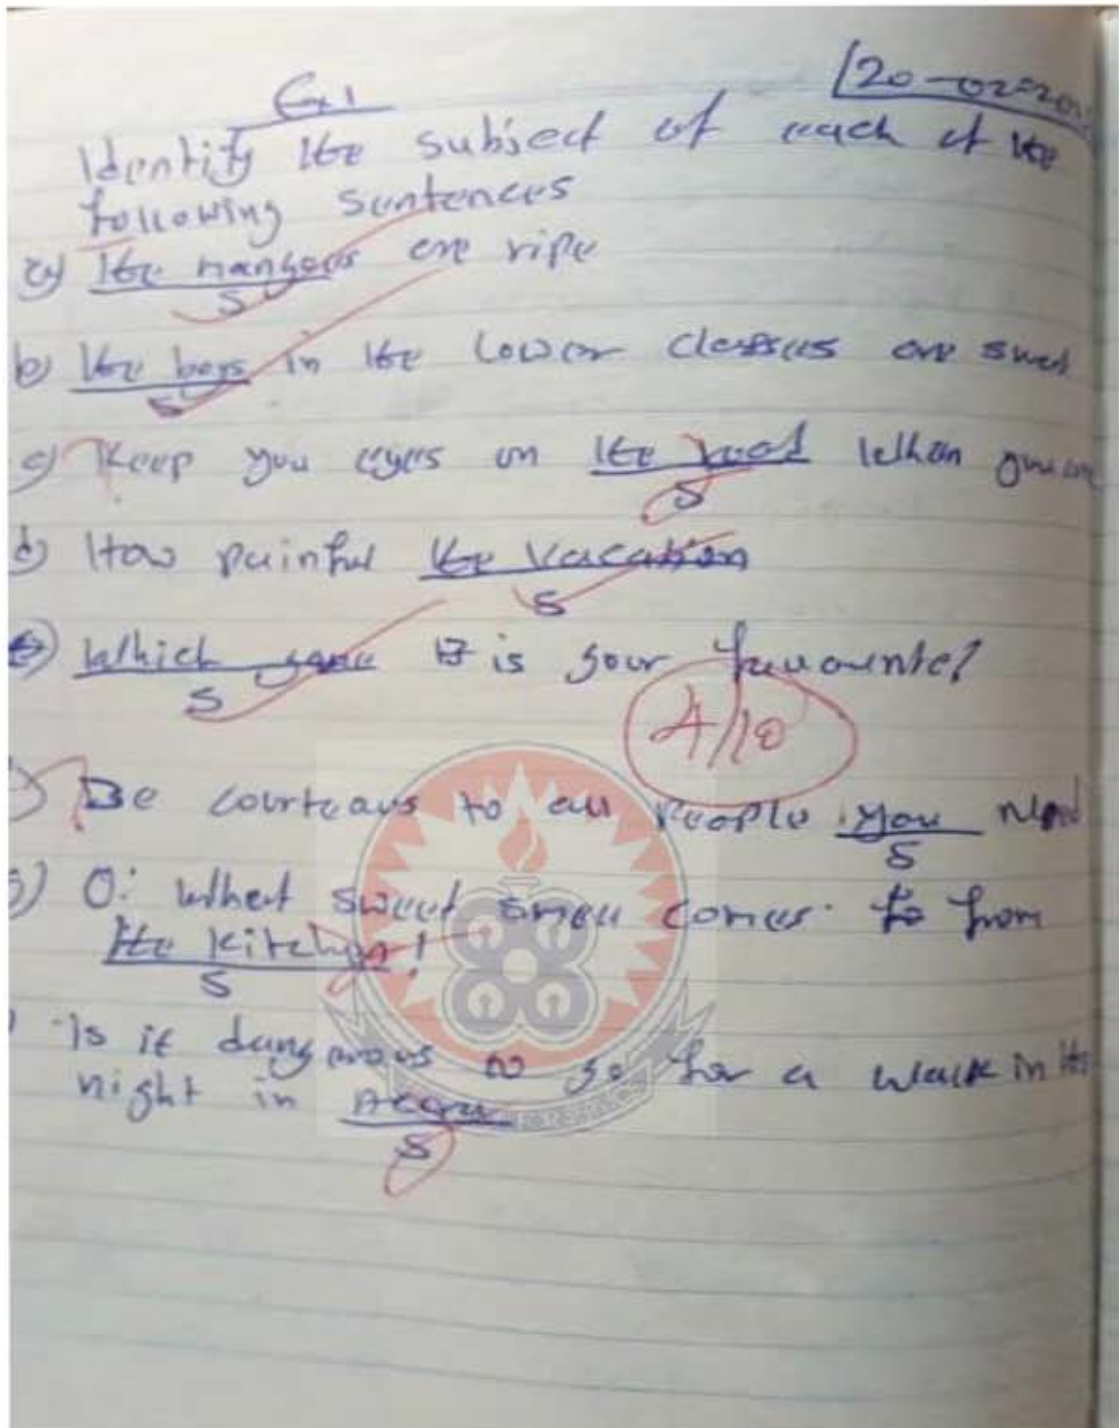 Ex 1
20-02-20
Identify the subject of each of the
following sentences
a) the mangoes are ripe
S
b) the boys in the lower classes are
S
c) Keep you eyes on the road when
S
d) How painful the vacation
S
e) Which game is your
S
4/10
Be courteous to all people you
S
g) O! what sweet smell comes from
the kitchen!
S
Is it dangerous to go for a walk in the
night in Accra
S